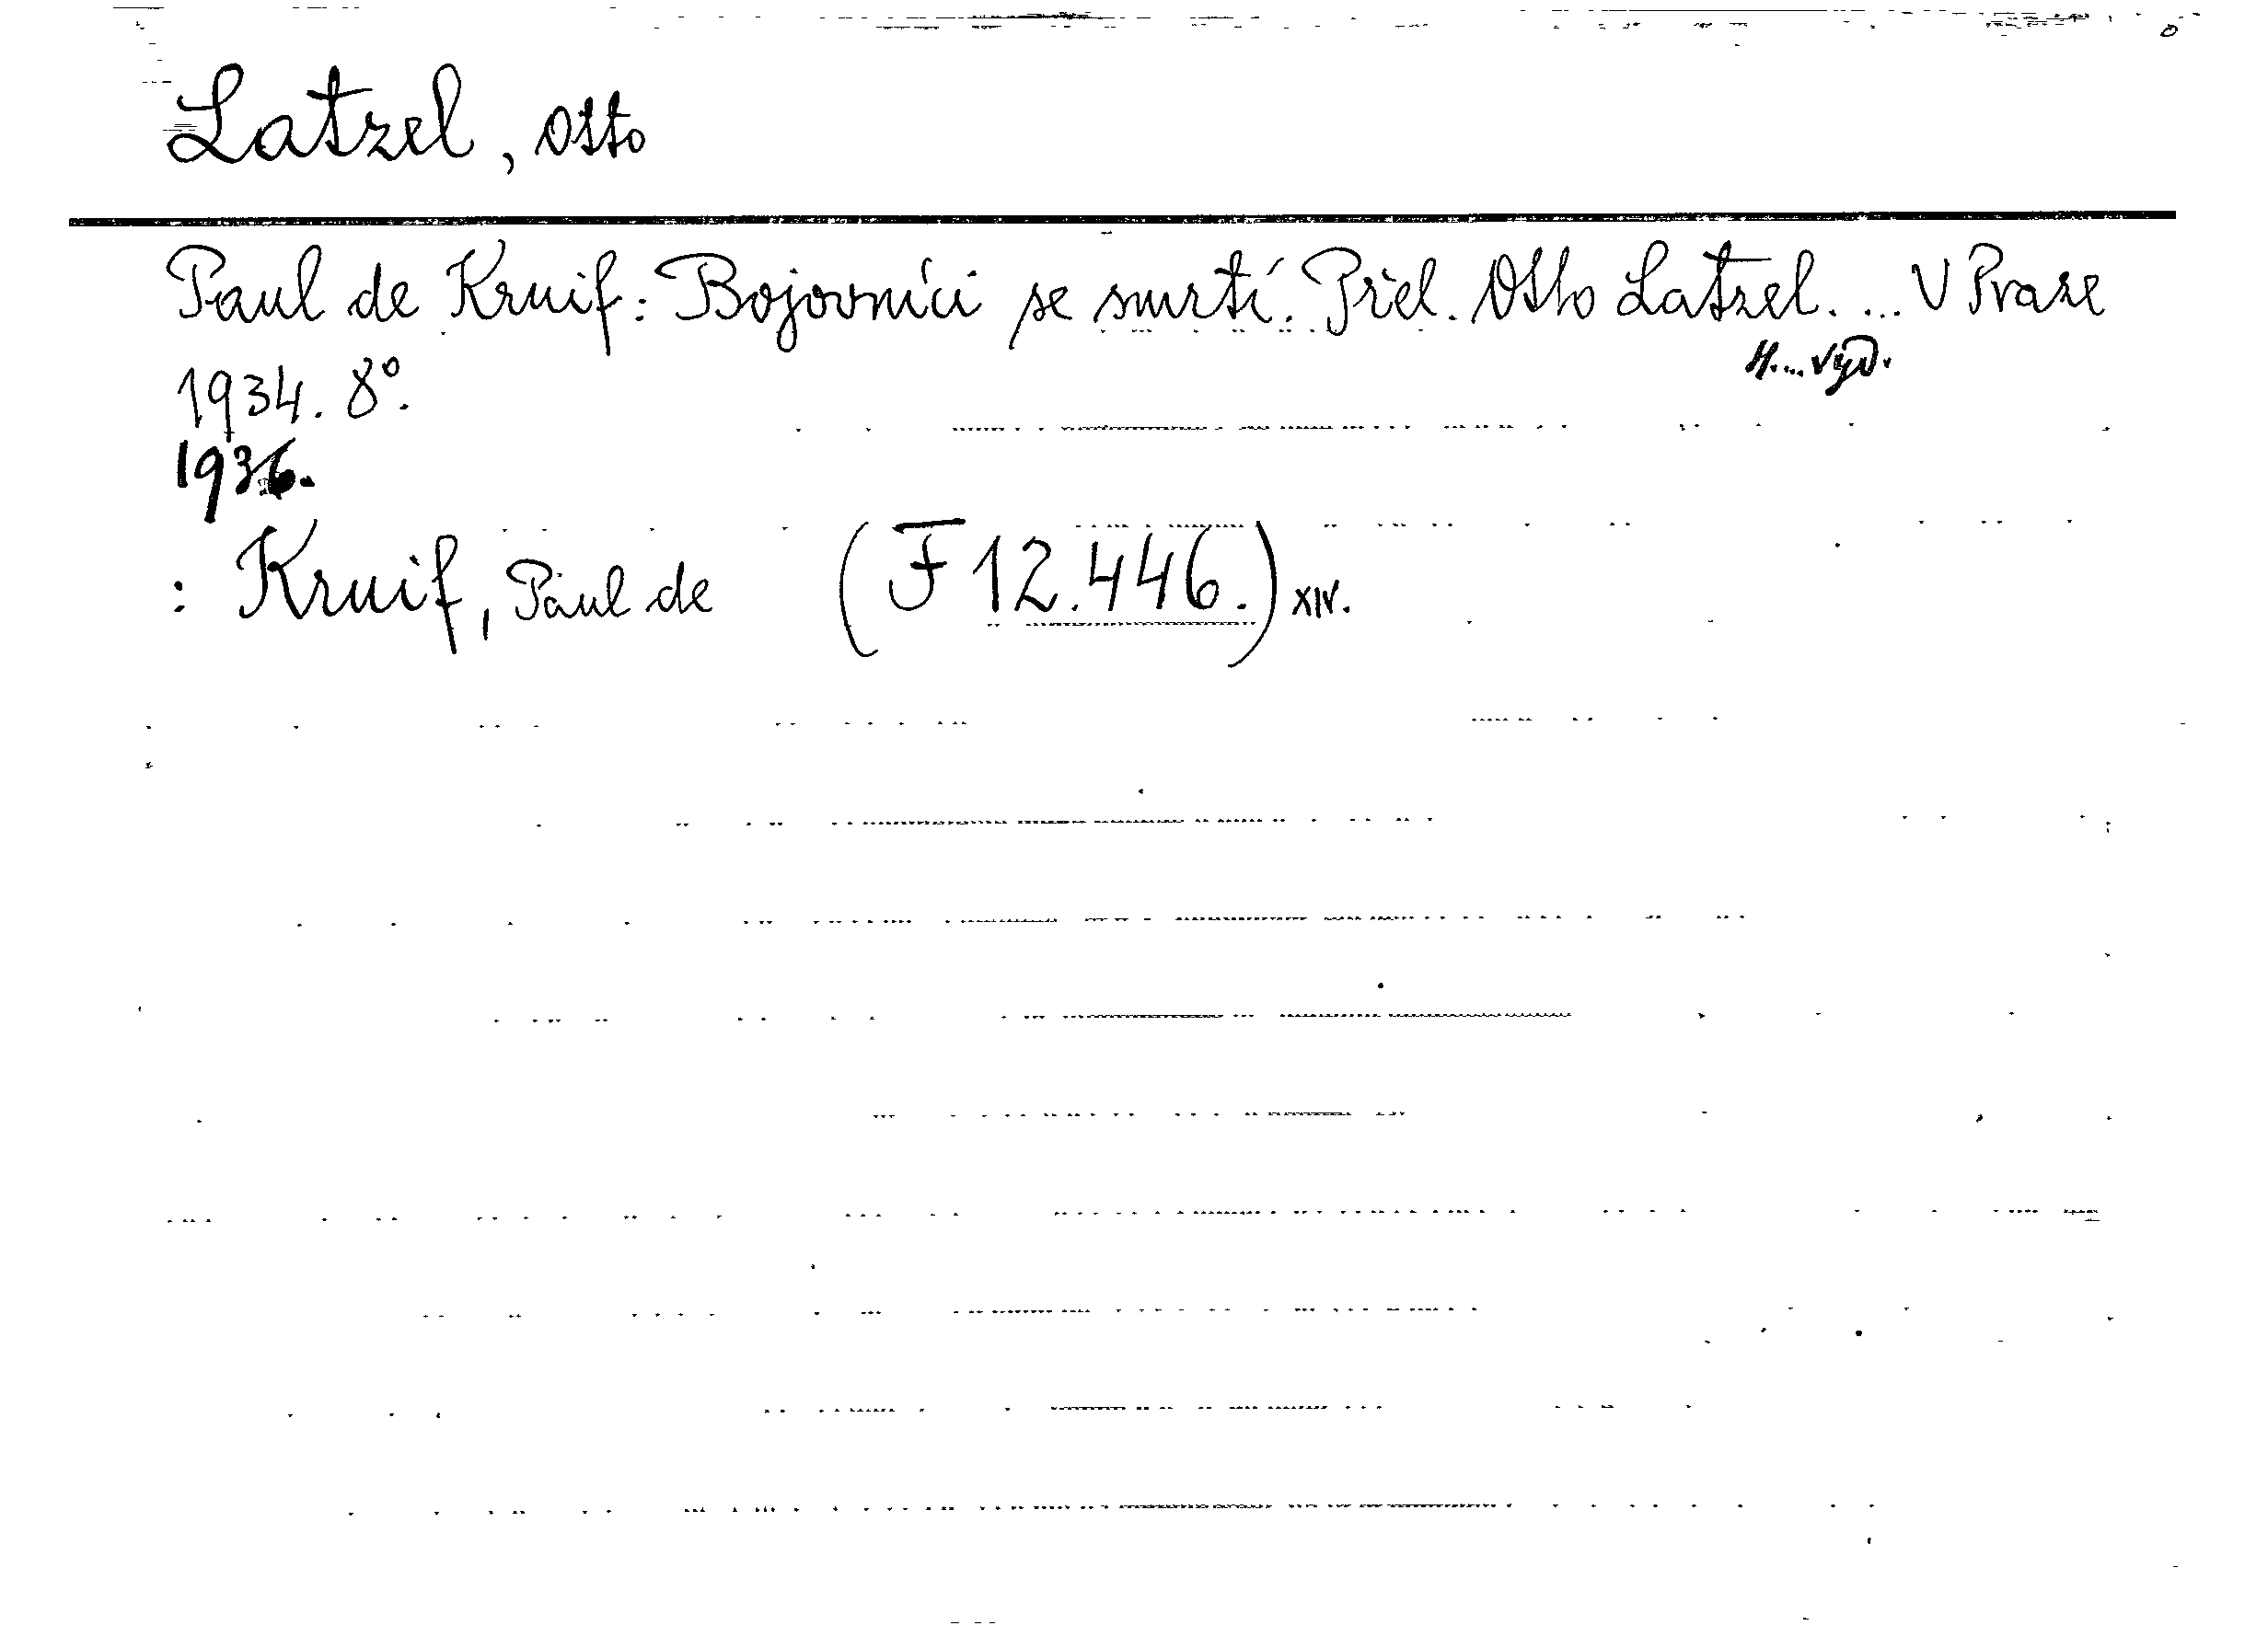 Latzel, Otto
Paul de Kruif: Bojovníci se smrtí. Přel. Otto Latzel. ... V Praze
4. ... vyd.
1934. 8°.
1936.
: Kruif, Paul de (F 12.446.) XIV.